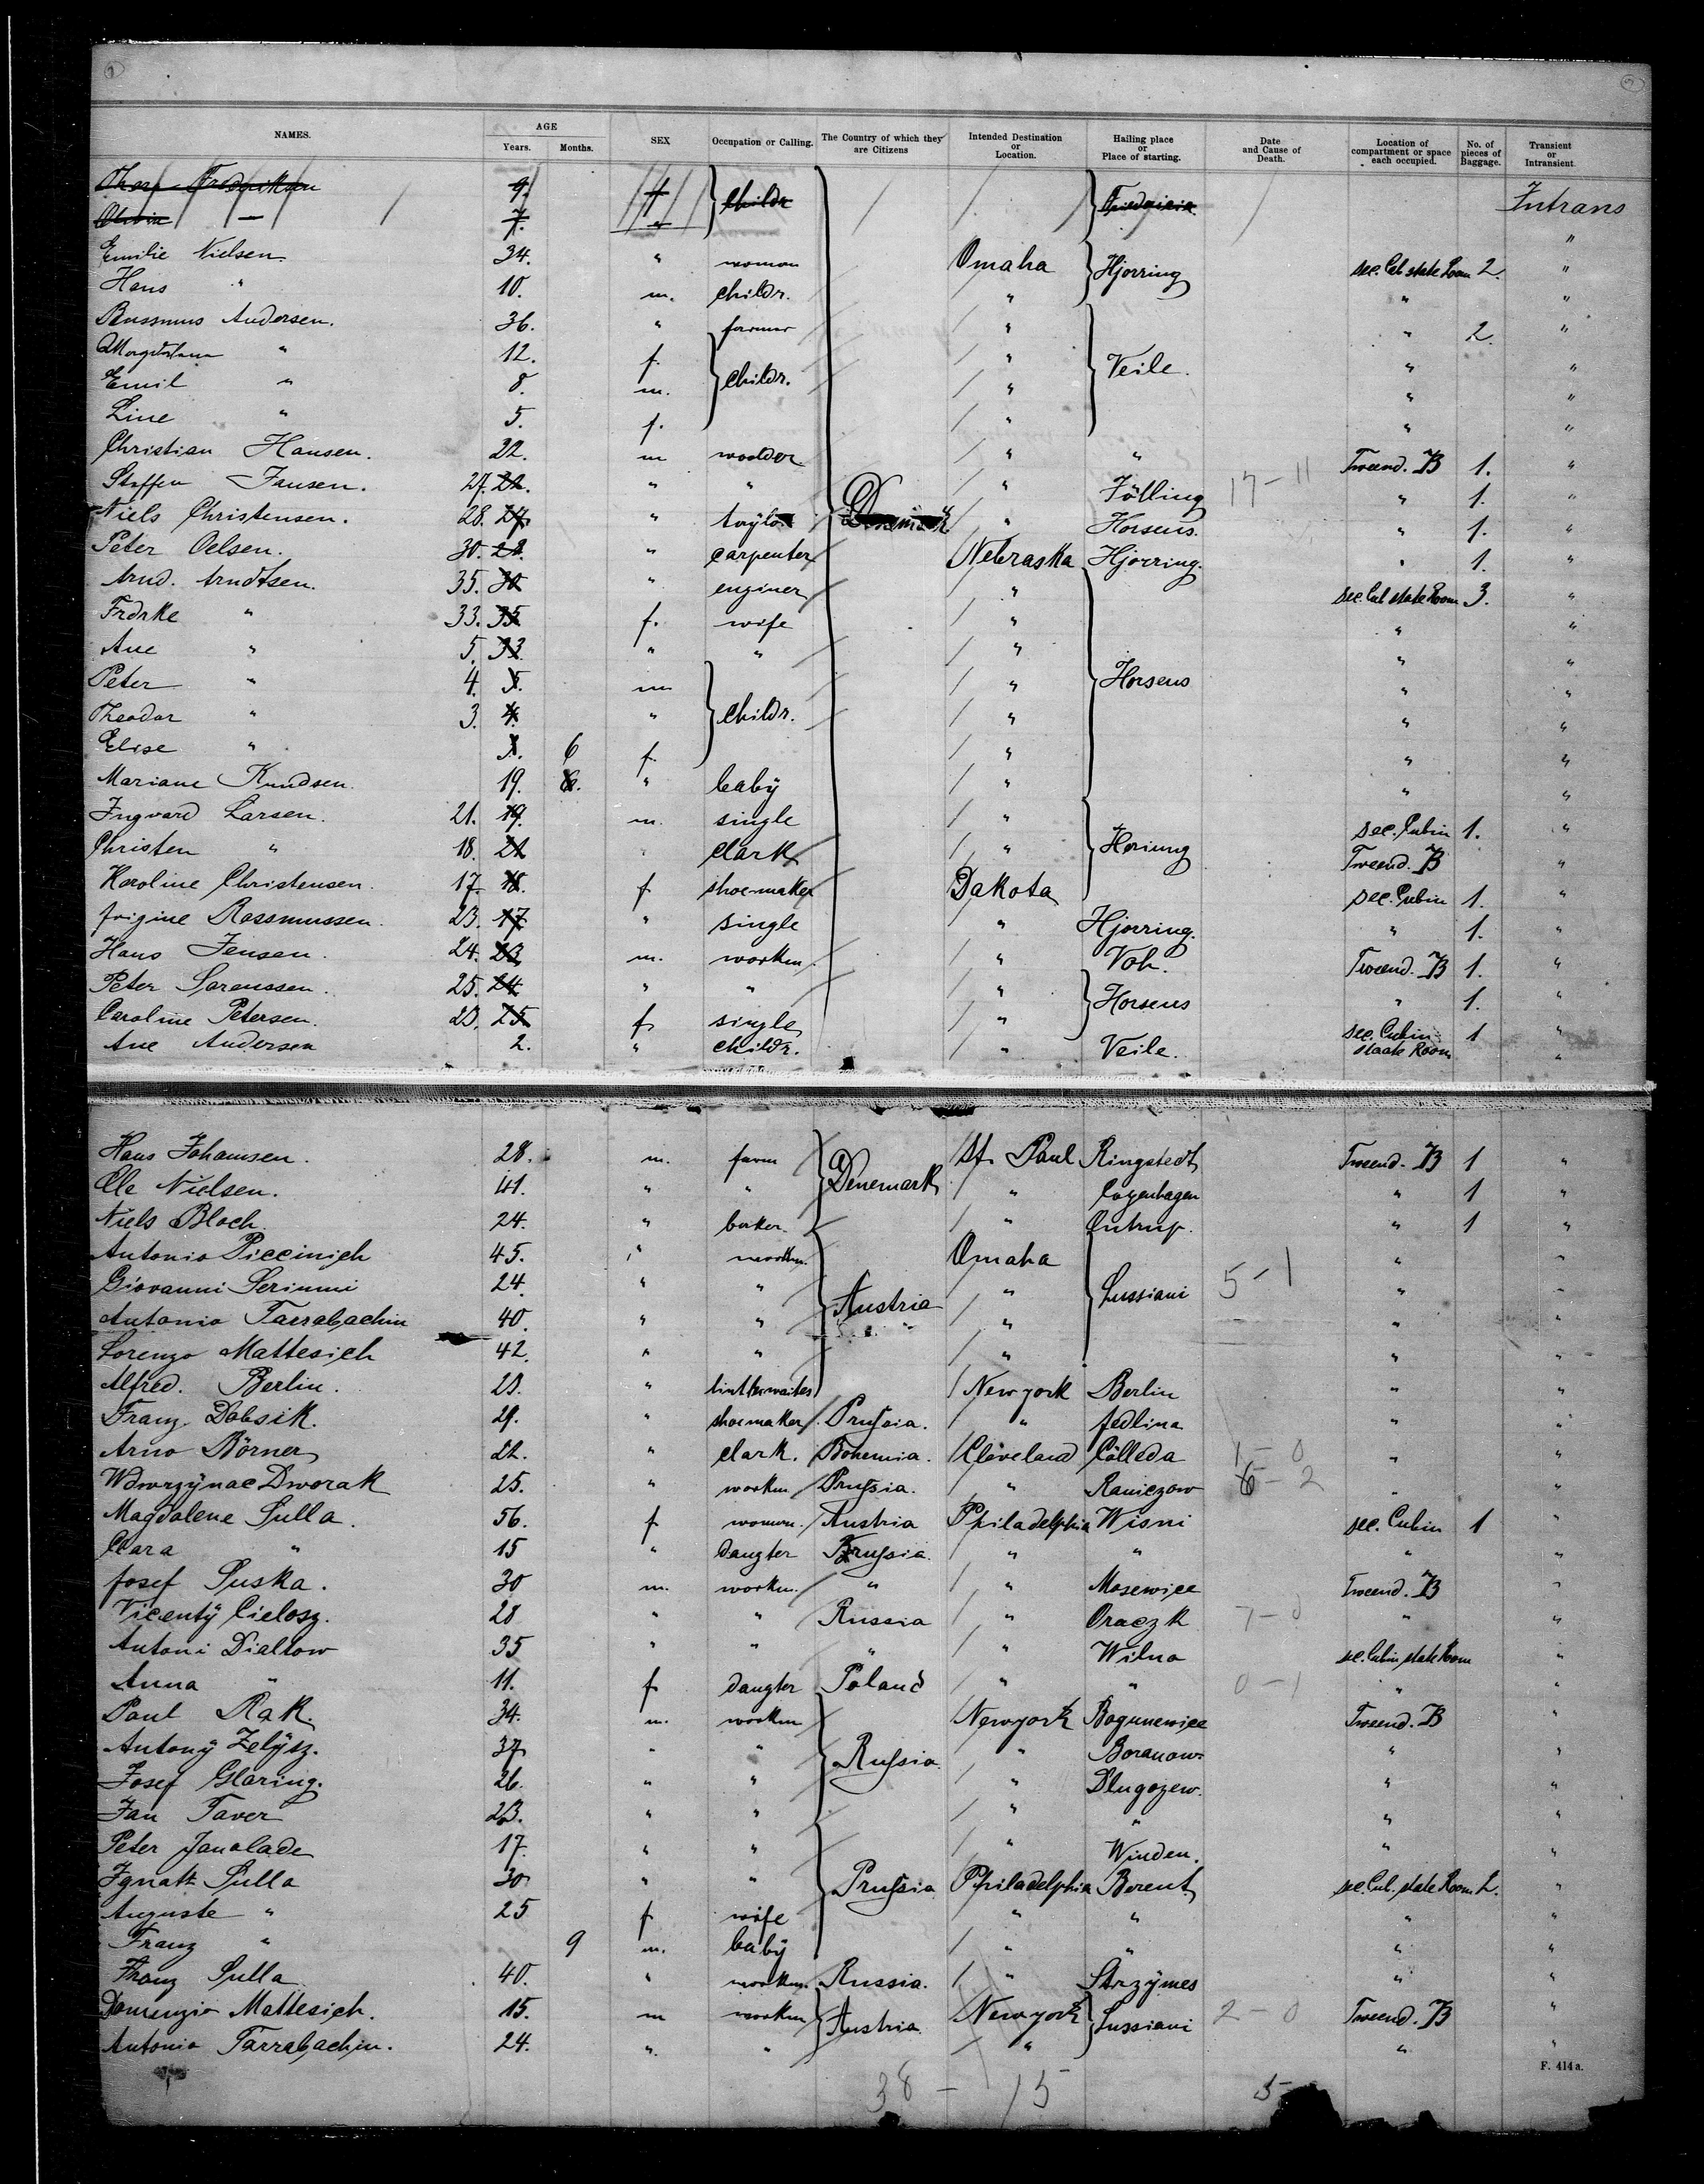 NAMES. AGE Years. Months. SEX Occupation or Calling. The Country of which they are Citizens Intended Destination or Location. Hailing place or Place of starting. Date and Cause of Death. Location of compartment or space each occupied. No. of pieces of Baggage. Transient or Intransient.
9. f Childr Intrans
— 7. " "
Emilie Nielsen 34. " woman Omaha Hjorring sec. Cab state Room 2. "
Hans " 10. m. childr. " " "
Rassmus Andersen. 36. " farmer " " 2. "
" 12. f. childr. " Veile. " "
Emil " 8. m. " " "
Line " 5. f. " " "
Christian Hansen. 22. m " " Tweend. B 1. "
Steffen Jansen. 27. 22. " " " Jölling 17-11 " 1. "
Niels Christensen. 28. 27. " taylor Denmark " Horsens. " 1. "
Peter Oelsen. 30. 28. " carpenter Nebraska Hjorring. " 1. "
Arnd. Arndtsen. 35. 30 " enginer " sec. Cab state Room 3. "
Frdrke " 33. 35 f. wife " " "
Ane " 5. 33 " " " " "
Peter " 4. 5. m " Horsens " "
Theodor " 3. 4. " childr. " " "
Elise " 3. 6 f. " " "
Mariane Knudsen. 19. 6. " baby " " "
Ingvard Larsen. 21. 19. m. single " sec. Cubin 1. "
Christen " 18. 21 clark " Horiung Tweend. B "
Karoline Christensen. 17. 18. f. shoemaker Dakota sec. Cubin 1. "
Rassmussen. 23. 17 " single " Hjorring. " 1. "
Hans Jensen. 24. 23 m. workm. " Voh. Tweend. B 1. "
Peter Sorenssen. 25. 24 " " " Horsens " 1. "
Caroline Petersen. 23. 25 f. single " sec. Cubin 1 "
Ane Andersen 2. " childr. " Veile. staate Room "
Hans Johannsen. 28. m. farm Denemark St. Paul Ringstedt Tweend. B 1 "
Ole Nielsen. 41. " " " Copenhagen " 1 "
Niels Bloch. 24. " baker. " Ontrup. " 1 "
Antonio Piccinich 45. " workm. Omaha " "
Giovanni 24. " " Austria " Lussiani 5-1 " "
Antonio Tarrabachin 40. " " " " "
Lorenzo Mattesich 42. " " " " "
Alfred. Berlin. 23. " Newyork Berlin " "
Franz. Dobsik. 29. " shoemaker Prussia. " Jedlina " "
Arno Börner 22. " clark. Bohemia. Cleveland Cölleda 1-0 " "
Dworak 25. " workm Prussia. " Raniczow 6-2 " "
Magdalene Sulla. 56. f woman. Austria Philadelphia Wisni sec. Cubin 1 "
Clara " 15 " daugter Prussia. " " " "
Josef Suska. 30 m. workm. " " Mosewice Tweend. B "
Vicentÿ Cielosz. 28 " " Russia " Oraczk 7-0 " "
Antoni Dialtow 35 " " " " Wilna sec. Cubin state Room "
Anna " 11. f daugter Poland " " 0-1 " "
Paul Rak. 34. m. workm Newyork Bogunewice Tweend. B "
Antonÿ Zelÿsz. 37 " " Russia " Boranow " "
Josef Glaring. 26. " " " Dlugozew. " "
Jan Taver 23. " " " " " "
Peter Janalade 17. " " " Winden. " "
Ignatz Sulla 30 " " Prussia Philadelphia Berent sec. Cub. state Room 2. "
Auguste " 25 f wife " " " "
Franz " 9 m. baby " " " "
Franz Sulla 40. " workm. Russia. " Strzÿmes " "
Mattesich. 15. m workm Austria. Newyork Lussiani 2-0 Tweend. B "
Antonio Tarrabachin. 24. " " " " "
F. 414a.
38 - 15 5